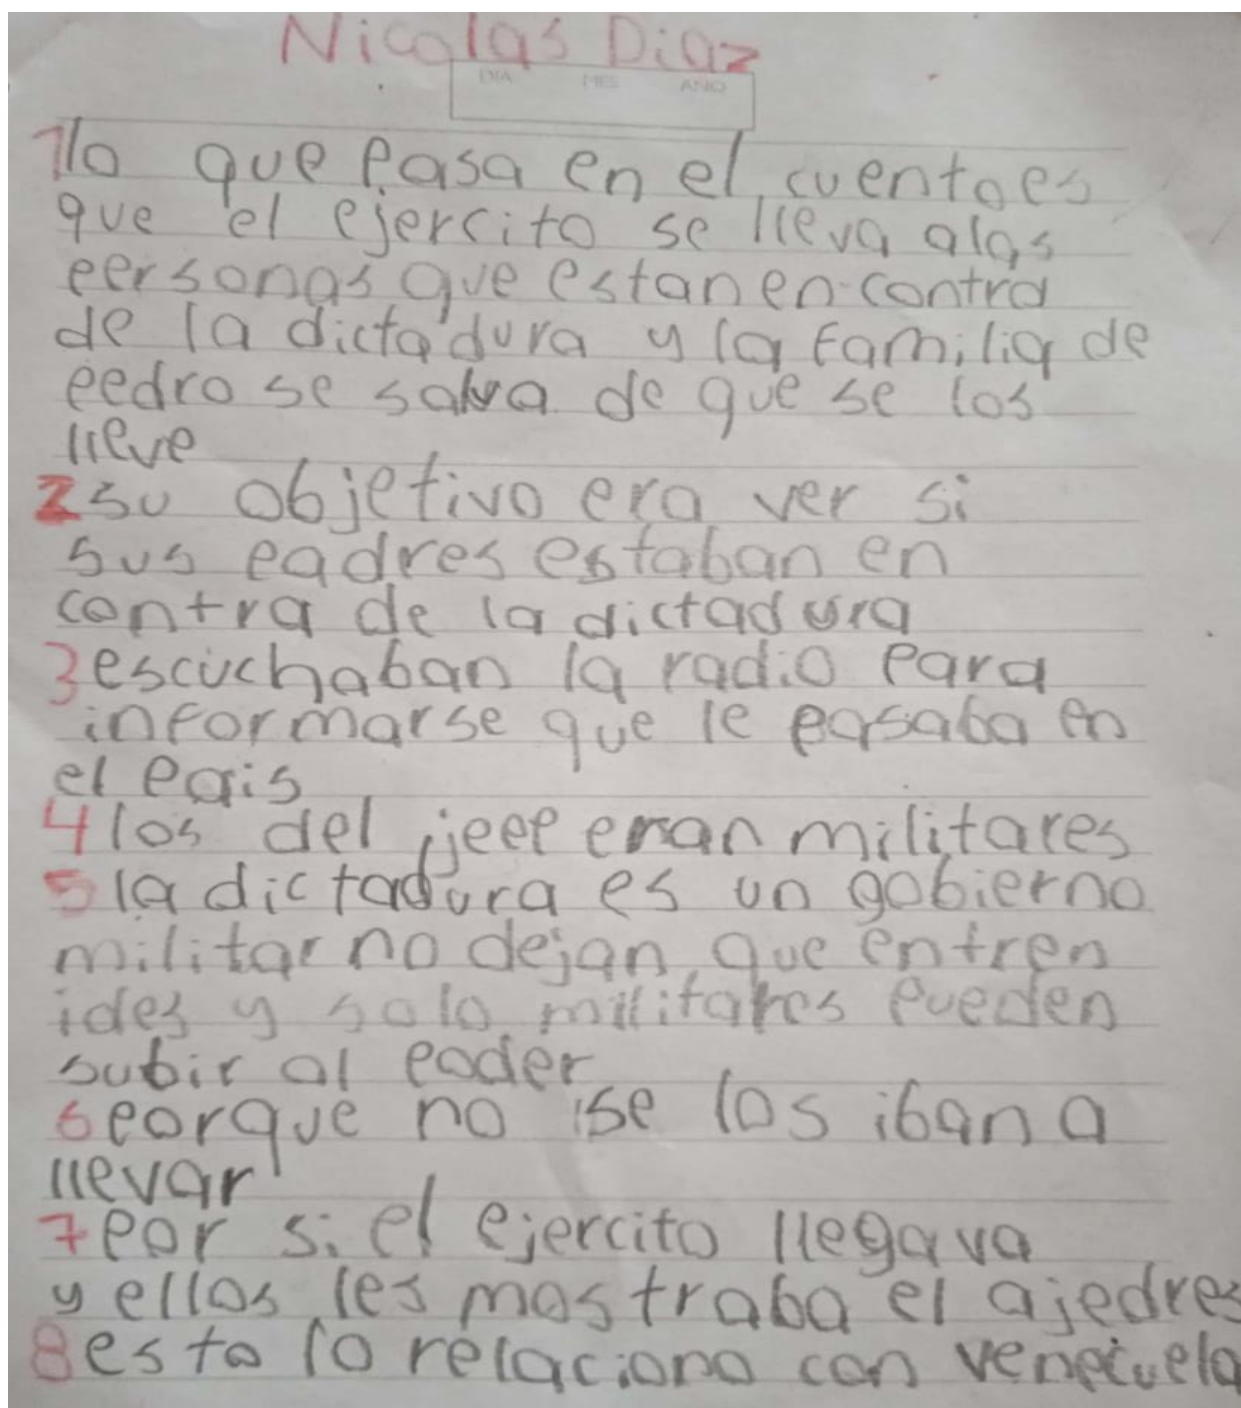 Nicolas Diaz
DIA MES AÑO
1 lo que pasa en el cuento es
que el ejercito se lleva a las
personas que estan en contra
de la dictadura y la familia de
pedro se salva de que se los
lleve
2 su objetivo era ver si
sus padres estaban en
contra de la dictadura
3 escuchaban la radio para
informarse que le pasaba en
el pais
4 los del jeep eran militares
5 la dictadura es un gobierno
militar no dejan que entren
ides y solo militares pueden
subir al poder
6 porque no se los iban a
llevar
7 por si el ejercito llegava
y ellos les mostraba el ajedres
8 esto lo relaciono con venezuela